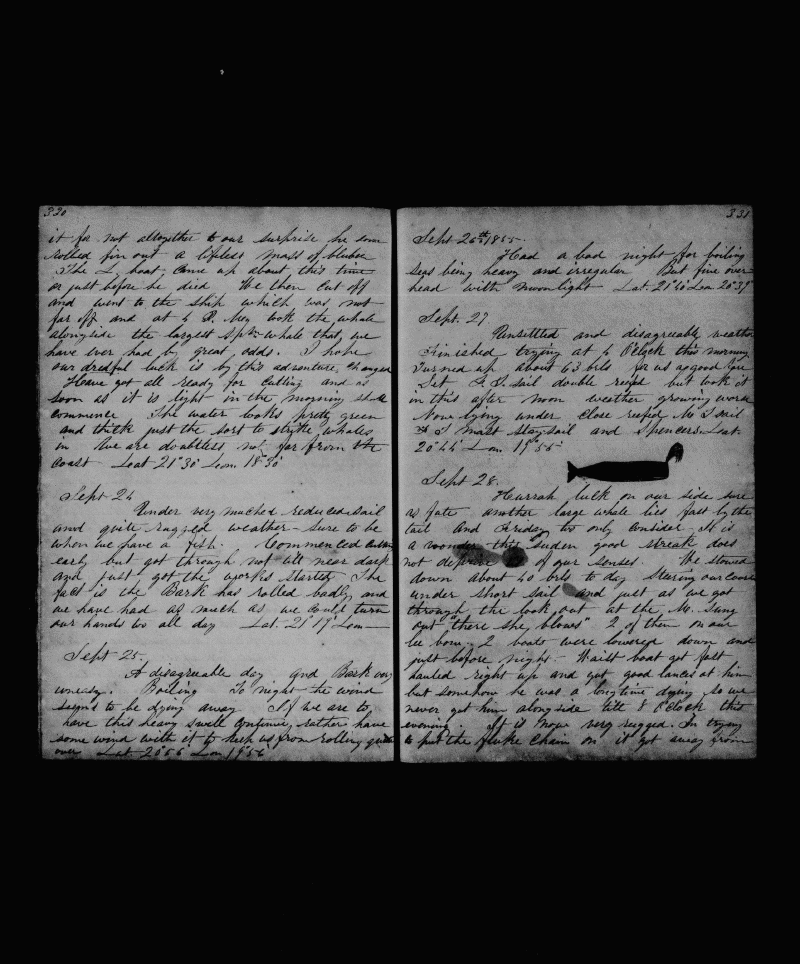 330
it for not altogether to our surprise he soon
rolled fin out a lifeless mass of blubber
The L, boat, came up about this time
or just before he died We then cut off
and went to the ship which was not
far off and at 4 P. M took the whale
alongside the largest Spm whale that we
have ever had by great odds. I hope
our dredful luck is by this adventure changed
Have got all ready for cutting and as
soon as it is light in the morning shall
commence The water looks pretty green
and thick just the sort to strike whales
in We are doubtless not far from the
coast Lat 21°30 Lon. 18°30
Sept 24
Under very much reduced sail
and quite rugged weather - sure to be
when we have a fish. Commenced cutting
early but got through not till near dark
and just got the works started The
fact is the Bark has rolled badly and
we have had as much as we could turn
our hands to all day Lat. 21°17' Lon
Sept 25.
A disagreeable day and Bark very
uneasy. Boiling To night the wind
seems to be dying away If we are to
have this heavy swell continue, rather have
some wind with it to keep us from rolling quite
over Lat 20°56 Lon 19°56
331
Sept 26th 1855.
Had a bad night for boiling
seas being heavy and irregular But fine over
head with moonlight Lat. 21°40 Lon 20°39
Sept. 27
Unsettled and disagreeable weather
Finished trying at 6 O'clock this morning
Turned up about 63 brls
Set sail double reefd but took it
in this after noon weather growing worse
Now lying under close reefd M. T sail
& mast staysail and Spencers. Lat.
20°44' Lon. 19°55'
Sept 28.
Hurrah luck on our side sure
as fate another large whale lies fast by the
tail and Friday to only consider It is
a wonder this suden good streak does
not deprive of our senses. We stowed
down about 40 brls to day Steering our course
under short sail and just as we got
through the look out at the M. sung
out "there she blows" 2 of them on our
lee bow, 2 boats were lowered down and
just before night - Waist boat got fast
hauled right up and got good lances at him
but somehow he was a long time dying so we
never got him along side till 8 O'clock this
evening. It is now very rugged. In trying
to put the fluke chain on it got away from